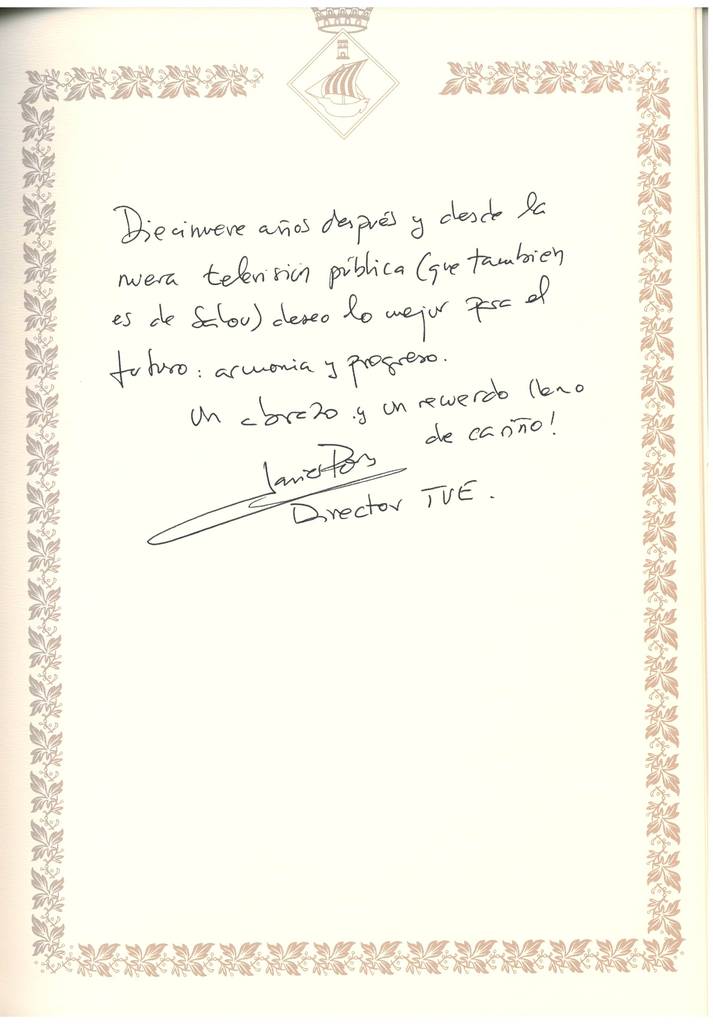 Diecinueve años después y desde la
nueva televisión pública (que tambien
es de Salou) deseo lo mejor para el
futuro: armonia y progreso.
Un abrazo y un recuerdo lleno
de cariño!
Javier Pons
Director TVE.